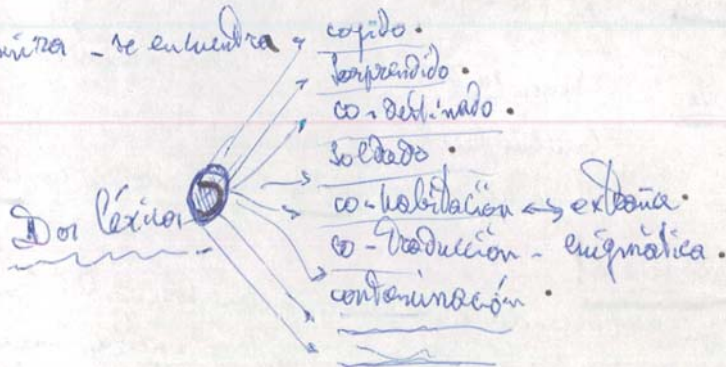 se encuentra cogido.
sorprendido.
co-destinado.
soldado.
Dos léxicos
co-habitación ↔ extraña.
co-traducción - enigmática.
contaminación.